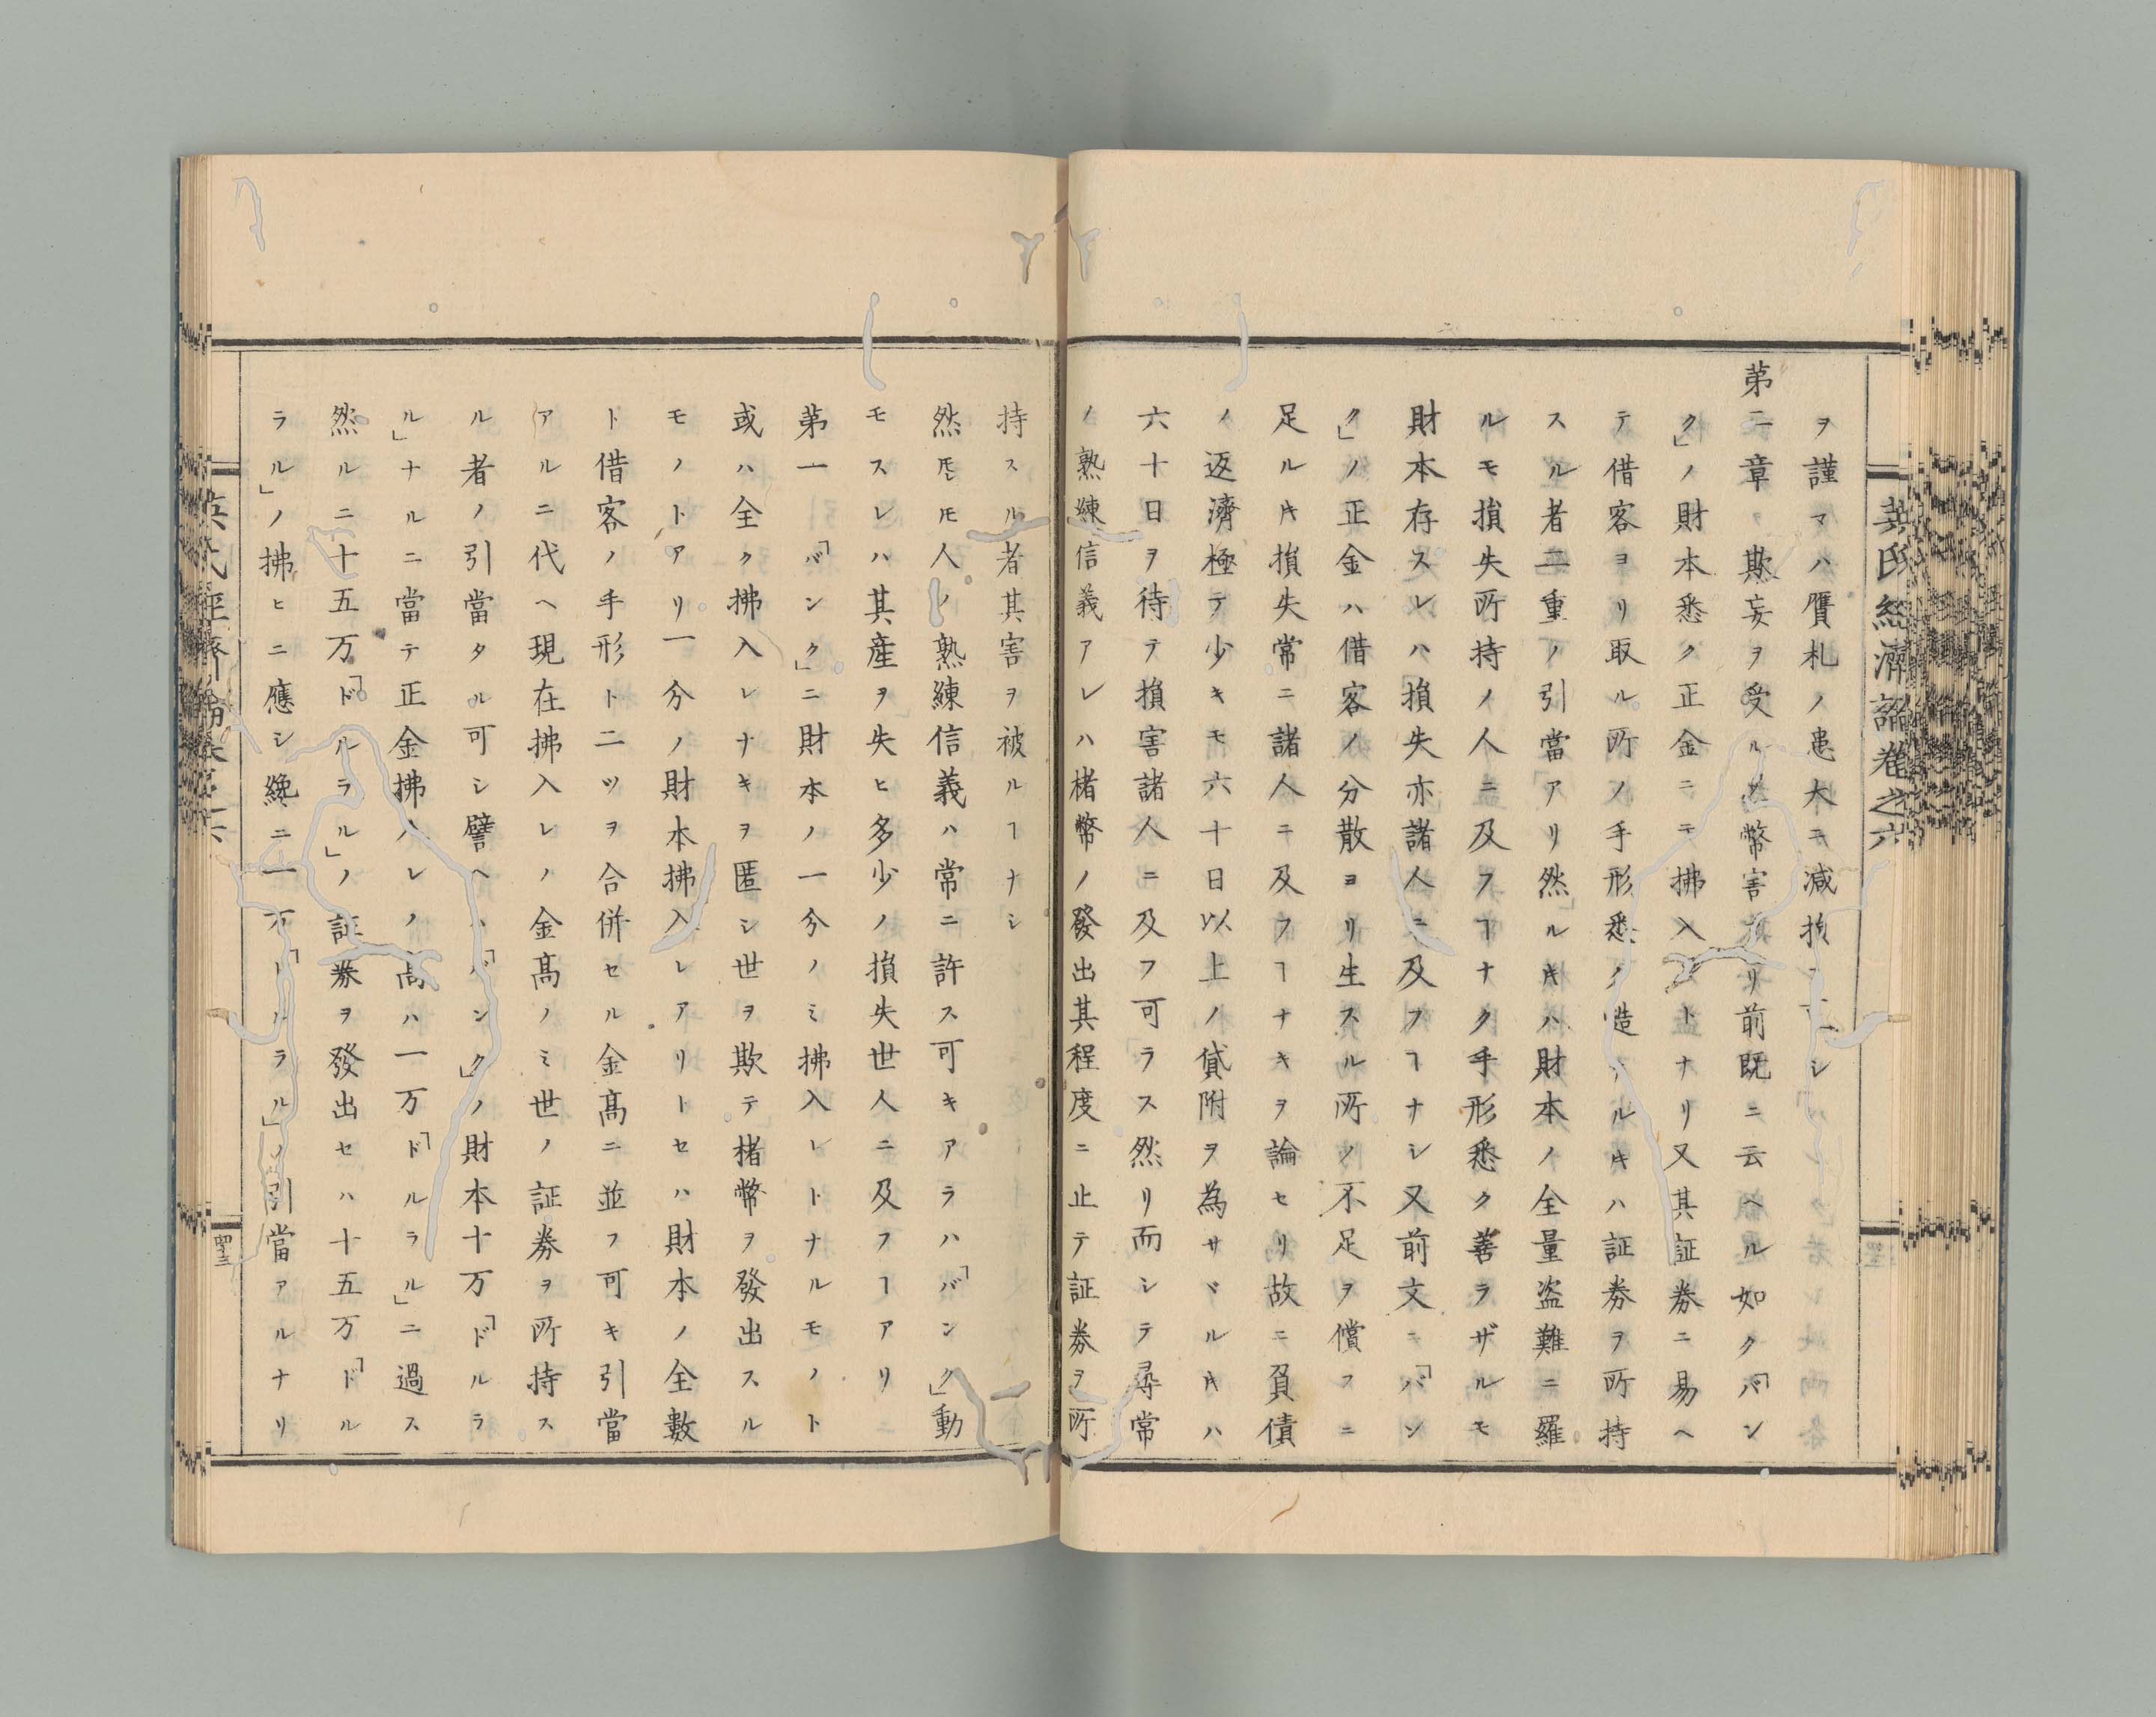 英氏経濟論卷之六
ヲ謹マハ贋札ノ患大ニ減損
第二章 欺妄ヲ受ル楮幣害損リ前既ニ云ヘル如ク「バン
ク」ノ財本悉ク正金ニテ拂入レトナリ又其証券ニ易ヘ
テ借客ヨリ取ル所ノ手形悉ク造ナルキハ証券ヲ所持
スル者二重ノ引當アリ然ルキハ財本ノ全量盗難ニ羅
ルモ損失所持ノ人ニ及フヿナク手形悉ク善ラザルモ
財本存スレハ損失亦諸人ニ及フヿナシ又前文ニ「バン
ク」ノ正金ハ借客ノ分散ヨリ生スル所ノ不足ヲ償フニ
足ルキ損失常ニ諸人ニ及フヿナキヲ論セリ故ニ負債
ノ返濟極テ少キモ六十日以上ノ貸附ヲ為サヾルキハ
六十日ヲ待テ損害諸人ニ及フ可ラス然リ而シテ尋常
ノ熟練信義アレハ楮幣ノ發出其程度ニ止テ証券ヲ所
持スル者其害ヲ被ルヿナシ
然𪜈モ人ノ熟練信義ハ常ニ許ス可キアラハ「バンク」動
モスレハ其産ヲ失ヒ多少ノ損失世人ニ及フヿアリ
第一「バンク」ニ財本ノ一分ノミ拂入レトナルモノト
或ハ全ク拂入レナキヲ匿シ世ヲ欺テ楮幣ヲ發出スル
モノトアリ一分ノ財本拂入レアリトセハ財本ノ全數
ト借客ノ手形ト二ツヲ合併セル金髙ニ並フ可キ引當
アルニ代ヘ現在拂入レノ金髙ノミ世ノ証券ヲ所持ス
ル者ノ引當タル可シ譬ヘハ「バンク」ノ財本十万「ドルラ
ル」ナルニ當テ正金拂入レノ髙ハ一万「ドルラル」ニ過ス
然ルニ十五万「ドルラル」ノ証券ヲ發出セハ十五万「ドル
ラル」ノ拂ヒニ應シ纔ニ一万「ドルラル」ノ引當アルナリ
英氏経濟論卷之六